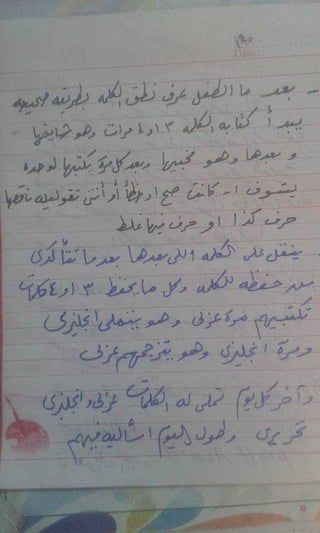 - بعد ما الطفل عرف نطق الكلمه بطريقه صحيحه
يبدأ كتابه الكلمه ٣ او ٤ مرات وهو شايفها
وبعدها وهو مخبيها وبعد كل مرة يكتبها لوحده
يشوف ان كانت صح او خطأ أو أنتى تقوليله ناقصها
حرف كذا او حرف فيها غلط
. ينقل على الكلمه اللى بعدها بعد ما تتأكدى
من حفظه للكلمه وكل ما يحفظ ٣ او ٤ كلمات
تكتبيهم مرة عربى وهو انجليزى
ومرة انجليزى وهو يترجمهم عربى
وآخر كل يوم تملى له الكلمات عربى وانجليزى
تحريرى وطول اليوم اسأليه فيهم
Date